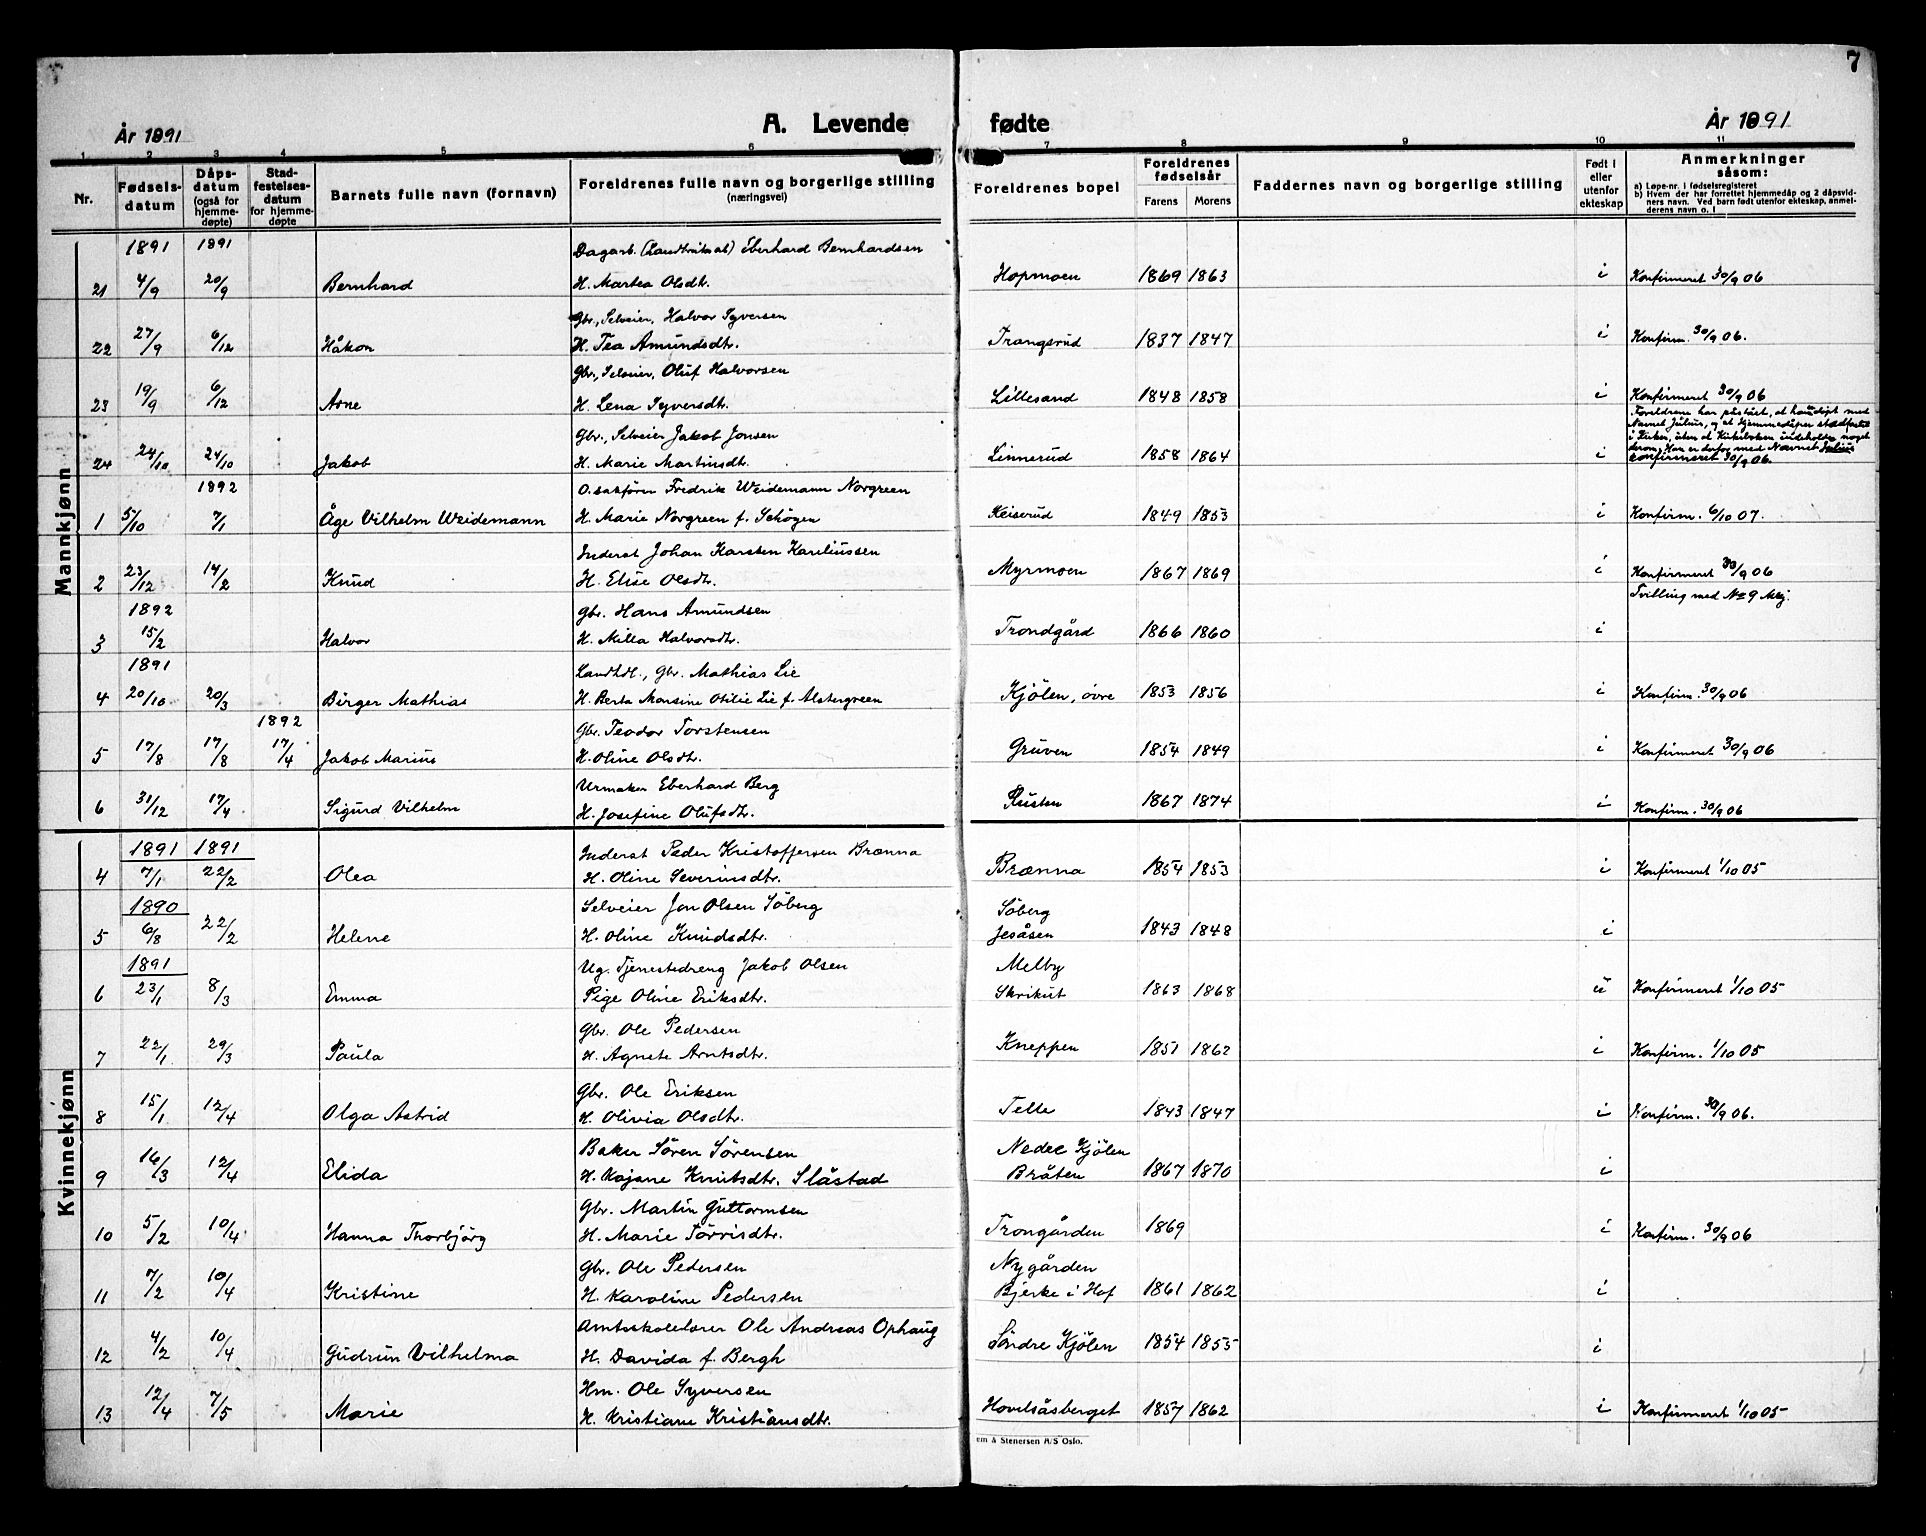 7
År 1891
A. Levende fødte
År 1891
1 2 3 4 5 6 7 8 9 10 11
Nr. | Fødsels-datum | Dåps-datum (også for hjemme-døpte) | Stad-festelses-datum for hjemme-døpte | Barnets fulle navn (fornavn) | Foreldrenes fulle navn og borgerlige stilling (næringsvei) | Foreldrenes bopel | Foreldrenes fødselsår Farens Morens | Faddernes navn og borgerlige stilling | Født i eller utenfor ekteskap | Anmerkninger såsom: a) Løpe-nr. i fødselsregisteret b) Hvem der har forrettet hjemmedåp og 2 dåpsvidners navn. Ved barn født utenfor ekteskap, anmelderens navn o. l
Mannkjønn
1891 1891 Dagarb. (Landbruksab) Eberhard Bernhardsen
21 4/9 20/9 Bernhard H. Martea Olsdtr. Hopmoen 1869 1863 i Konfirmeret 30/9 06
Gbr., Selveier, Halvor Syversen
22 27/9 6/12 Håkon H. Tea Amundsdtr. Trangsrud 1837 1847 i Konfirm. 30/9 06.
Gbr., Selveier, Oluf Halvorsen
23 19/9 6/12 Arne H. Lena Syversdtr. Lillesand 1848 1858 i Konfirmeret 30/9 06
Gbr., Selveier Jakob Jonsen Foreldrene har påstået, at han døpt med
Navnet Julius, og at hjemmedåpen stadfestet
i Kirken, uten at Kirkeboken indeholder noget
24 24/10 24/10 Jakob H. Marie Martinsdtr. Linnerud 1858 1864 i derom. Han er derfor med Navnet Julius
konfirmeret 30/9 06.
1892 O.sakfører Fredrik Weidemann Norgreen
1 5/10 7/1 Åge Vilhelm Weidemann H. Marie Norgreen f. Schøyen Keiserud 1849 1853 i Konfirm. 6/10 07.
Inderst Johan Karsten Kareliussen
2 23/12 14/2 Knud H. Elise Olsdtr. Myrmoen 1867 1869 i Konfirmeret 30/9 06
1892 Gbr. Hans Amundsen Tvilling med No 9 Mkj.
3 15/2 Halvor H. Milla Halvorsdtr. Trondgård 1866 1860 i
1891 Landhdl., Gbr. Mathias Lie
4 20/10 20/3 Birger Mathias H. Berta Marsine Otilie Lie f. Alstergreen Kjölen, övre 1853 1856 i Konfirm. 30/9 06
1892 Gbr. Teodor Torstensen
5 17/8 17/8 17/4 Jakob Marius H. Oline Olsdtr. Gruven 1854 1849 i Konfirmeret 30/9 06
Urmaker Eberhard Berg
6 31/12 17/4 Sigurd Vilhelm H. Josefine Olufsdtr. Pusten 1867 1874 i Konfirm. 30/9 06
Kvinnekjønn
1891 1891 Inderst Peder Kristoffersen Brænna
4 7/1 22/2 Olea H. Oline Severinsdtr. Brænna 1854 1853 i Konfirmeret 1/10 05
1890 Selveier Jon Olsen Söberg Söberg
5 6/8 22/2 Helene H. Oline Knudsdtr. Jesåsen 1843 1848 i
1891 Ug. Tjenestedreng Jakob Olsen Melby
6 23/1 8/3 Emma Pige Oline Eriksdtr. Skrikut 1863 1868 u Konfirmeret 1/10 05
Gbr. Ole Pedersen
7 22/1 29/3 Paula H. Agnete Arntsdtr. Kneppen 1851 1862 i Konfirm. 1/10 05
Gbr. Ole Eriksen
8 15/1 12/4 Olga Astrid H. Olivia Olsdtr. Telle 1843 1847 i Konfirm. 30/9 06.
Baker Sören Sörensen Nedre Kjölen
9 16/3 12/4 Elida H. Kajane Knutsdtr. Slåstad Bråten 1867 1870 i
Gbr. Martin Guttormsen
10 5/2 10/4 Hanna Thorbjörg H. Marie Törrisdtr. Trongården 1869 i Konfirm. 30/9 06
Gbr. Ole Pedersen Nygården
11 7/2 10/4 Kristine H. Karoline Pedersen Bjerke i Hof 1861 1862 i
Amtsskolelærer Ole Andreas Ophaug
12 4/2 10/4 Gudrun Vilhelma H. Davida f. Bergh Söndre Kjölen 1854 1855 i
Hm. Ole Syversen
13 12/4 7/5 Marie H. Kristiane Kristiansdtr. Hovelsåsberget 1857 1862 i Konfirmeret 1/10 05
em & Stenersen A/S Oslo.